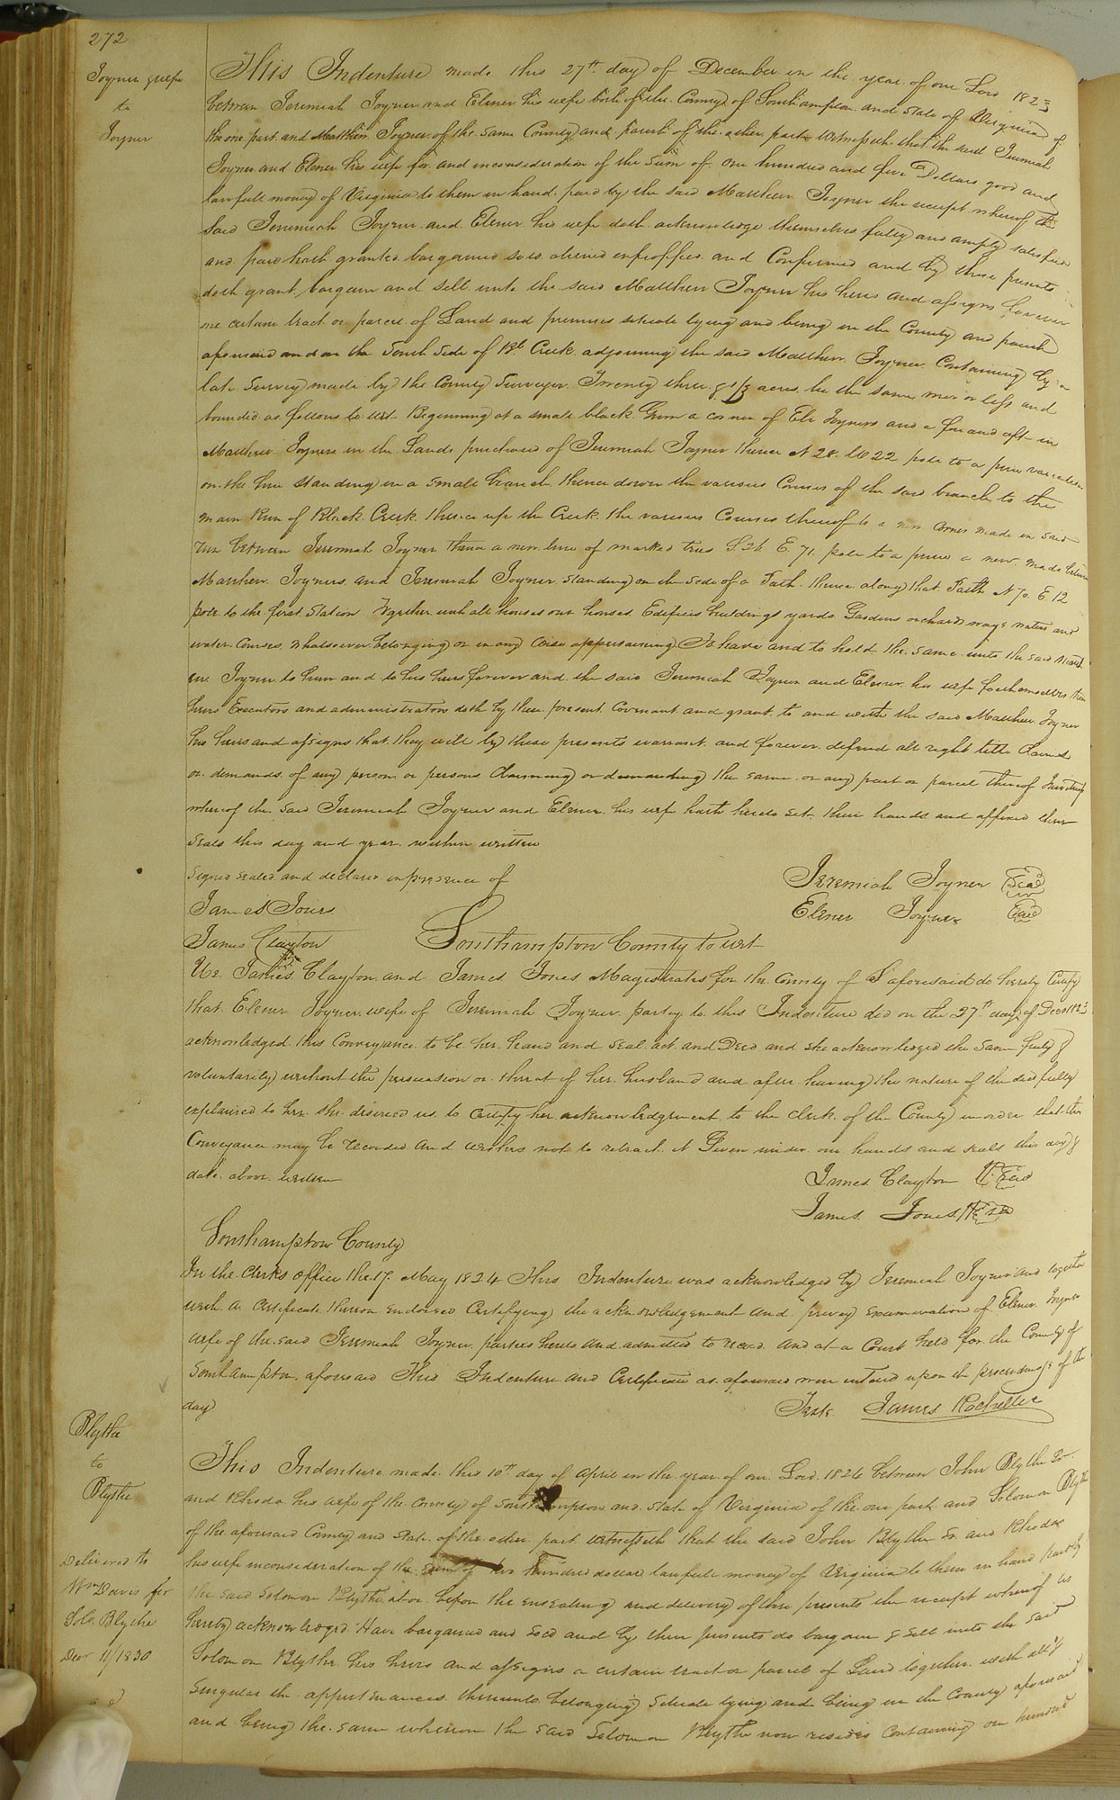 272
Joyner & wife
to
Joyner
This Indenture made this 27th day of December in the year of our Lord 1823
between Jeremiah Joyner and Elener his wife both of the County of Southampton and State of Virginia of
the one part and Matthew Joyner of the same County and parish of the other part Witnesseth that the said Jeremiah
Joyner and Elener his wife for and inconsideration of the Sum of one hundred and five Dollars good and
lawfull money of Virginia to them in hand paid by the said Matthew Joyner the receipt whereof the
Said Jeremiah Joyner and Elener his wife doth acknowledge themselves fully and amply satisfied
and paid hath granted bargained sold aliened enfeoffed and Confirmed and by these presents
doth grant bargain and sell unto the said Matthew Joyner his heirs and assigns forever
one certain tract or parcel of Land and premises situate lying and being in the County and parish
aforesaid and on the South Side of Blk Creek adjoining the said Matthew Joyner Containing by a
late Survey made by the County Surveyor Twenty three & 1/3 acres be the same more or less and
bounded as follows to wit Beginning at a small black Gum a corner of Eli Joyners and a fore and aft in
Matthew Joyners in the Lands purchased of Jeremiah Joyner thence N 28 W 22 pole to a pine
on the line standing in a small branch thence down the various Courses of the said branch to the
main Run of Black Creek thence up the Creek the various Courses thereof to a new Corner made in said
run between Jeremiah Joyner thence a new line of marked trees S 26 E 71 pole to a pine a new made between
Matthew Joyners and Jeremiah Joyner standing on the side of a Path thence along that Path N 70 E 12
pole to the first Station Together with all houses out houses Edifices buildings yards Gardens orchards ways waters and
water Courses whatsoever belonging or in any wise appertaining To have and to hold the same unto the said Matth
ew Joyner to him and to his heirs forever and the said Jeremiah Joyner and Elener his wife for themselves their
heirs Executors and administrators doth by these present Covenant and grant to and with the said Matthew Joyner
his heirs and assigns that they will by these presents warrant and forever defend all right title Claims
or demands of any person or persons Claiming or demanding the same or any part or parcel thereof In witness
whereof the said Jeremiah Joyner and Elener his wife hath hereto set their hands and affixed their
seals this day and year within written
Signed sealed and declared in presence of
Jeremiah Joyner Seal
James Jones
Elener Joyner Seal
James Clayton
Southampton County to wit
We James Clayton and James Jones Magistrates for the County of S aforesaid do hereby Certify
that Elener Joyner wife of Jeremiah Joyner party to this Indenture did on the 27th day of Decr 1823
acknowledged this Conveyance to be her hand and seal act and Deed and she acknowledged the same freely &
voluntarily without the persuasion or threat of her husband and after having the nature of the deed fully
explained to her she desired us to Certify her acknowledgement to the clerk of the County in order that this
Conveyance may be recorded and wishes not to retract it Given under our hands and seals this day &
date above written
James Clayton Seal
James Jones Seal
Southampton County
In the Clerks office the 17 May 1824 This Indenture was acknowledged by Jeremiah Joyner and together
with a Certificate thereon endorsed Certifying the acknowledgement and privey Examination of Elener Joyner
wife of the said Jeremiah Joyner parties hereto and admitted to record And at a Court held for the County of
Southampton aforesaid This Indenture and Certificate as aforesaid were entered upon the proceedings of the
day
Teste James Rochelle
Blythe
to
Blythe
Delivered to
Wm Davis for
Solo. Blythe
Decr 11/1830
This Indenture made this 10th day of April in the year of our Lord 1824 between John Blythe Sr
and Rhoda his wife of the County of Southampton and State of Virginia of the one part and Solomon Blythe
of the aforesaid County and State of the other part Witnesseth that the said John Blythe Sr and Rhoda
his wife inconsideration of the Sum of two hundred dollars lawfull money of Virginia to them in hand paid by
the said Solomon Blythe at or before the ensealing and delivery of these presents the receipt whereof is
hereby acknowledged Have bargained and sold and by these presents do bargain & sell unto the said
Solomon Blythe his heirs and assigns a certain tract or parcel of Land together with all &
Singular the appurtenances thereunto belonging Situate lying and being in the County aforesaid
and being the same whereon the said Solomon Blythe now resides Containing one hundred